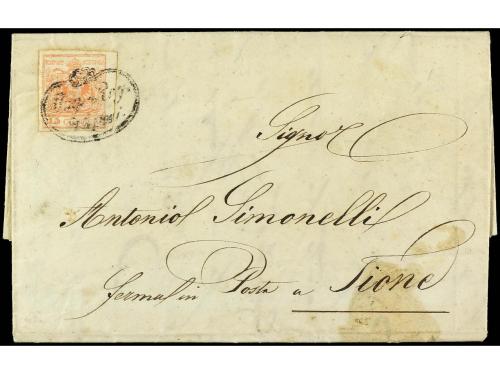 Signor
Antonio Simonelli
fermo in Posta a Tione